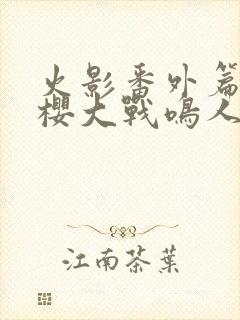 火影番外篇
櫻大戰鳴人
江南茶葉